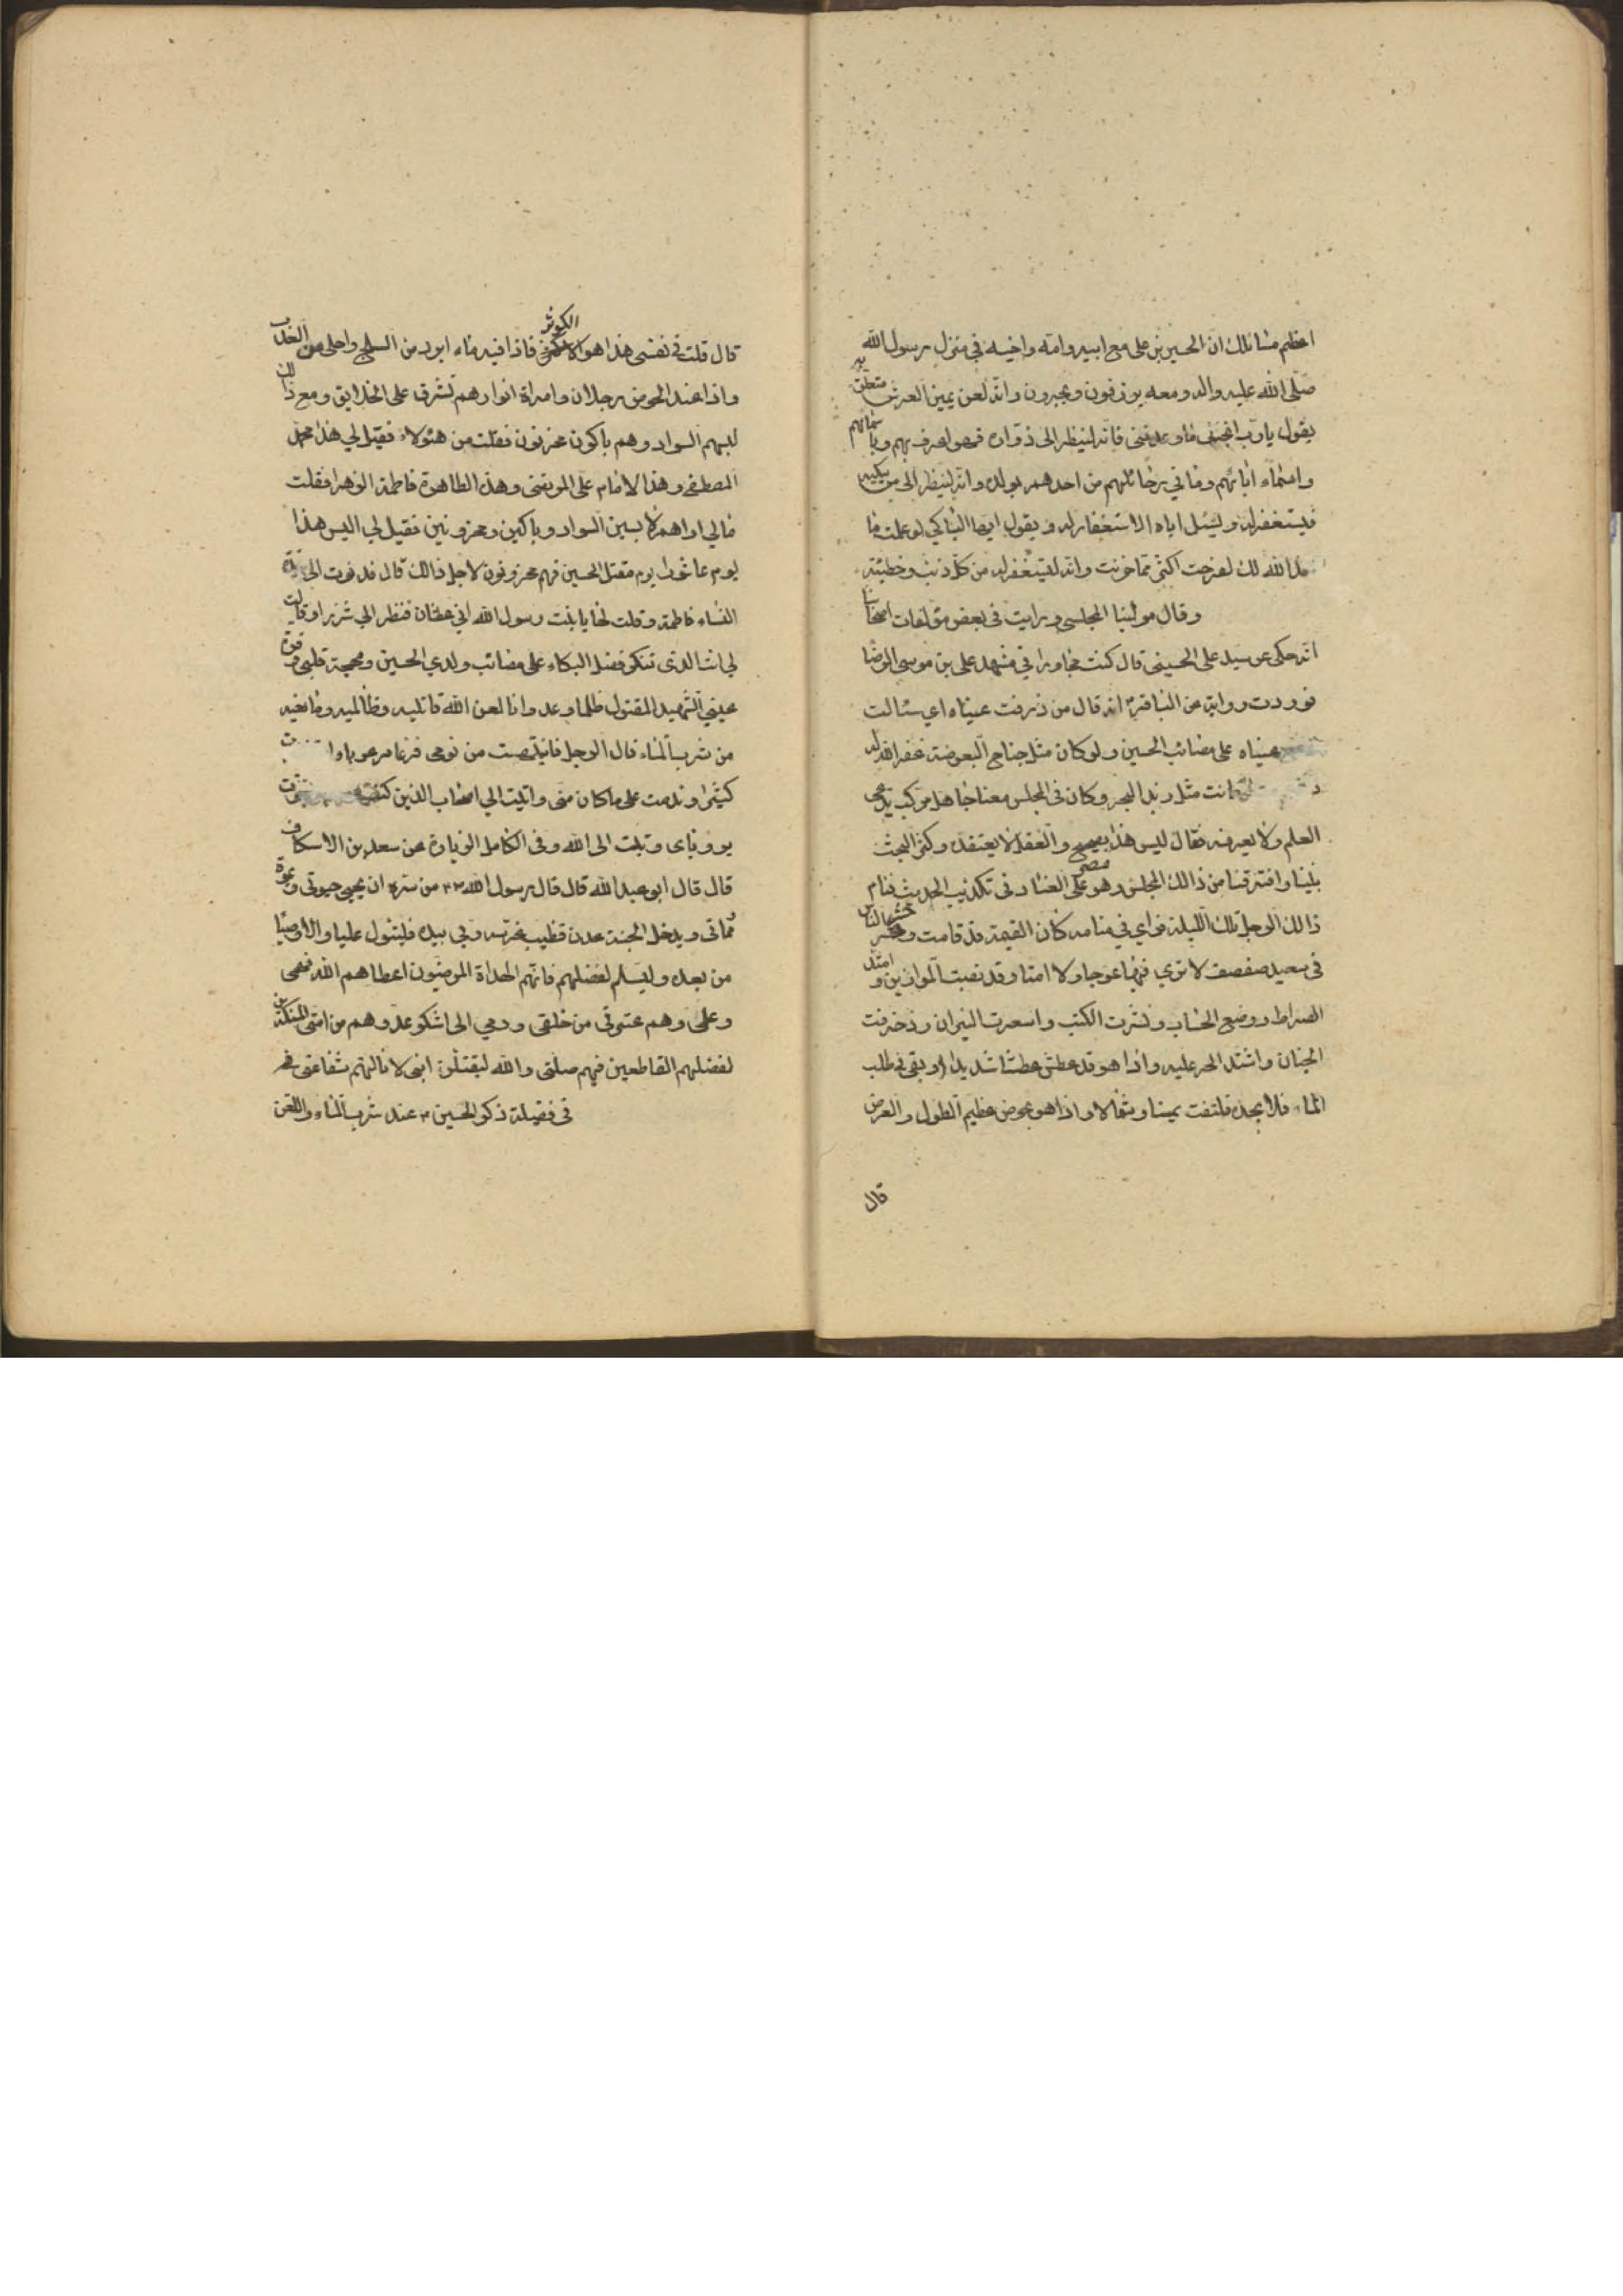 اعظم مسائلك ان الحسين بن علي مع ابيه وامه واخيه في منزل رسول الله
صلى الله عليه واله ومعه يرزقون ويحبرون وانه لعن يمين العرش متعلق به
يقول يا رب انجز ما وعدتني فانه لينظر الى زواره فهو اعرف بهم وباسمائهم
واسماء ابائهم وما في رحائلهم من احدهم بولده وانه لينظر الى من يبكيه
فيستغفر له ويسئل اباه الاستغفار له ويقول ايها الباكي لو علمت ما
الله لك لفرحت اكثر مما حزنت وانه ليستغفر له من كل ذنب وخطيئة
وقال مولينا المجلسي ورايت في بعض مؤلفات اصحابنا
انه حكى عن سيد علي الحسيني قال كنت مجاورا في مشهد علي بن موسى الرضا
فوردت رواية عن الباقر انه قال من ذرفت عيناه اي سئالت
عيناه على مصائب الحسين ولو كان مثل جناح البعوضة غفر الله له
كانت مثل زبد البحر وكان في المجلس معنا جاهل مركب يدعي
العلم ولا يعرفه فقال ليس هذا بصحيح والعقل لا يعتقده وكثر البحث
بيننا وافترقنا من ذالك المجلس وهو مصر على العناد في تكذيب الحديث فنام
ذالك الرجل تلك الليلة فراي في منامه كان القيمة قد قامت وحشر الناس
في صعيد صفصف لا تري فيها عوجا ولا امتا وقد نصبت الموازين وامتد
الصراط ووضع الحساب ونشرت الكتب واسعرت النيران وزخرفت
الجنان واشتد الحر عليه واذا هو قد عطش عطشا شديدا وبقي في طلب
الماء فلا يجده فلتفت يمينا وشمالا واذا هو بحوض عظيم الطول والعرض
قال
قال قلت في نفسي هذا هو الكوثر فاذا فيه ماء ابرد من السلج واحلى من العذب
واذا عند الحوض رجلان وامراة انوارهم تشرق على الخلايق ومع ذالك
لبسهم السواد وهم باكون محزنون فقلت من هئولاء فقيل لي هذا محمد
المصطفى وهذا الامام علي المرتضى وهذه الطاهرة فاطمة الزهرا فقلت
مالي اراهم لابسين السواد وباكين ومحزونين فقيل لي اليس هذا
يوم عاشورا يوم مقتل الحسين فهم محزونون لاجل ذالك قال فدنوت الى سيدة
النساء فاطمة وقلت لها يا بنت رسول الله اني عطشان فنظر الي شزرا وقالت
لي انت الذي تنكر فضل البكاء على مصائب ولدي الحسين ومهجة قلبي وقرة
عيني الشهيد المقتول ظلما وعدوانا لعن الله قاتليه وظالميه ومانعيه
من شرب الماء قال الرجل فانتبهت من نومي فزعا مرعوبا
كثيرا وندمت على ما كان مني واتيت الي اصحاب الذين كنت
برؤياي وتبت الى الله وفي الكامل الزيارة عن سعد بن الاسكاف
قال قال ابو عبد الله قال قال رسول الله من سره ان يحيى حيوتي ويموت
مماتي ويدخل الجنة عدن قظيب غرسه ربي بيده فليتول عليا والاوصيا
من بعده وليسلم لفضلهم فانهم الهداة المرضيون اعطاهم الله فهمى
وعلمي وهم عترتي من خلقي ودمي الى اشكو عدوهم من امتي المنكرين
لفضلهم القاطعين فيهم صلتي والله ليقتلن ابني لا نالتهم شفاعتي
في فضيلة ذكر الحسين عند شرب الماء واللعن